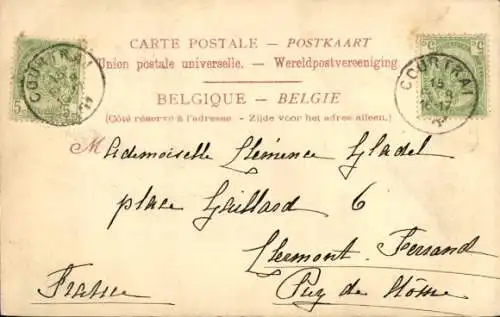 CARTE POSTALE – POSTKAART
Union postale universelle. – Wereldpostvereeniging
BELGIQUE – BELGIE
(Côté réservé à l'adresse. – Zijde voor het adres alleen.)
COURTRAI
COURTRAI
Mademoiselle Clémence Gladel
place Gaillard 6
Clermont-Ferrand
Puy de Dôme
France